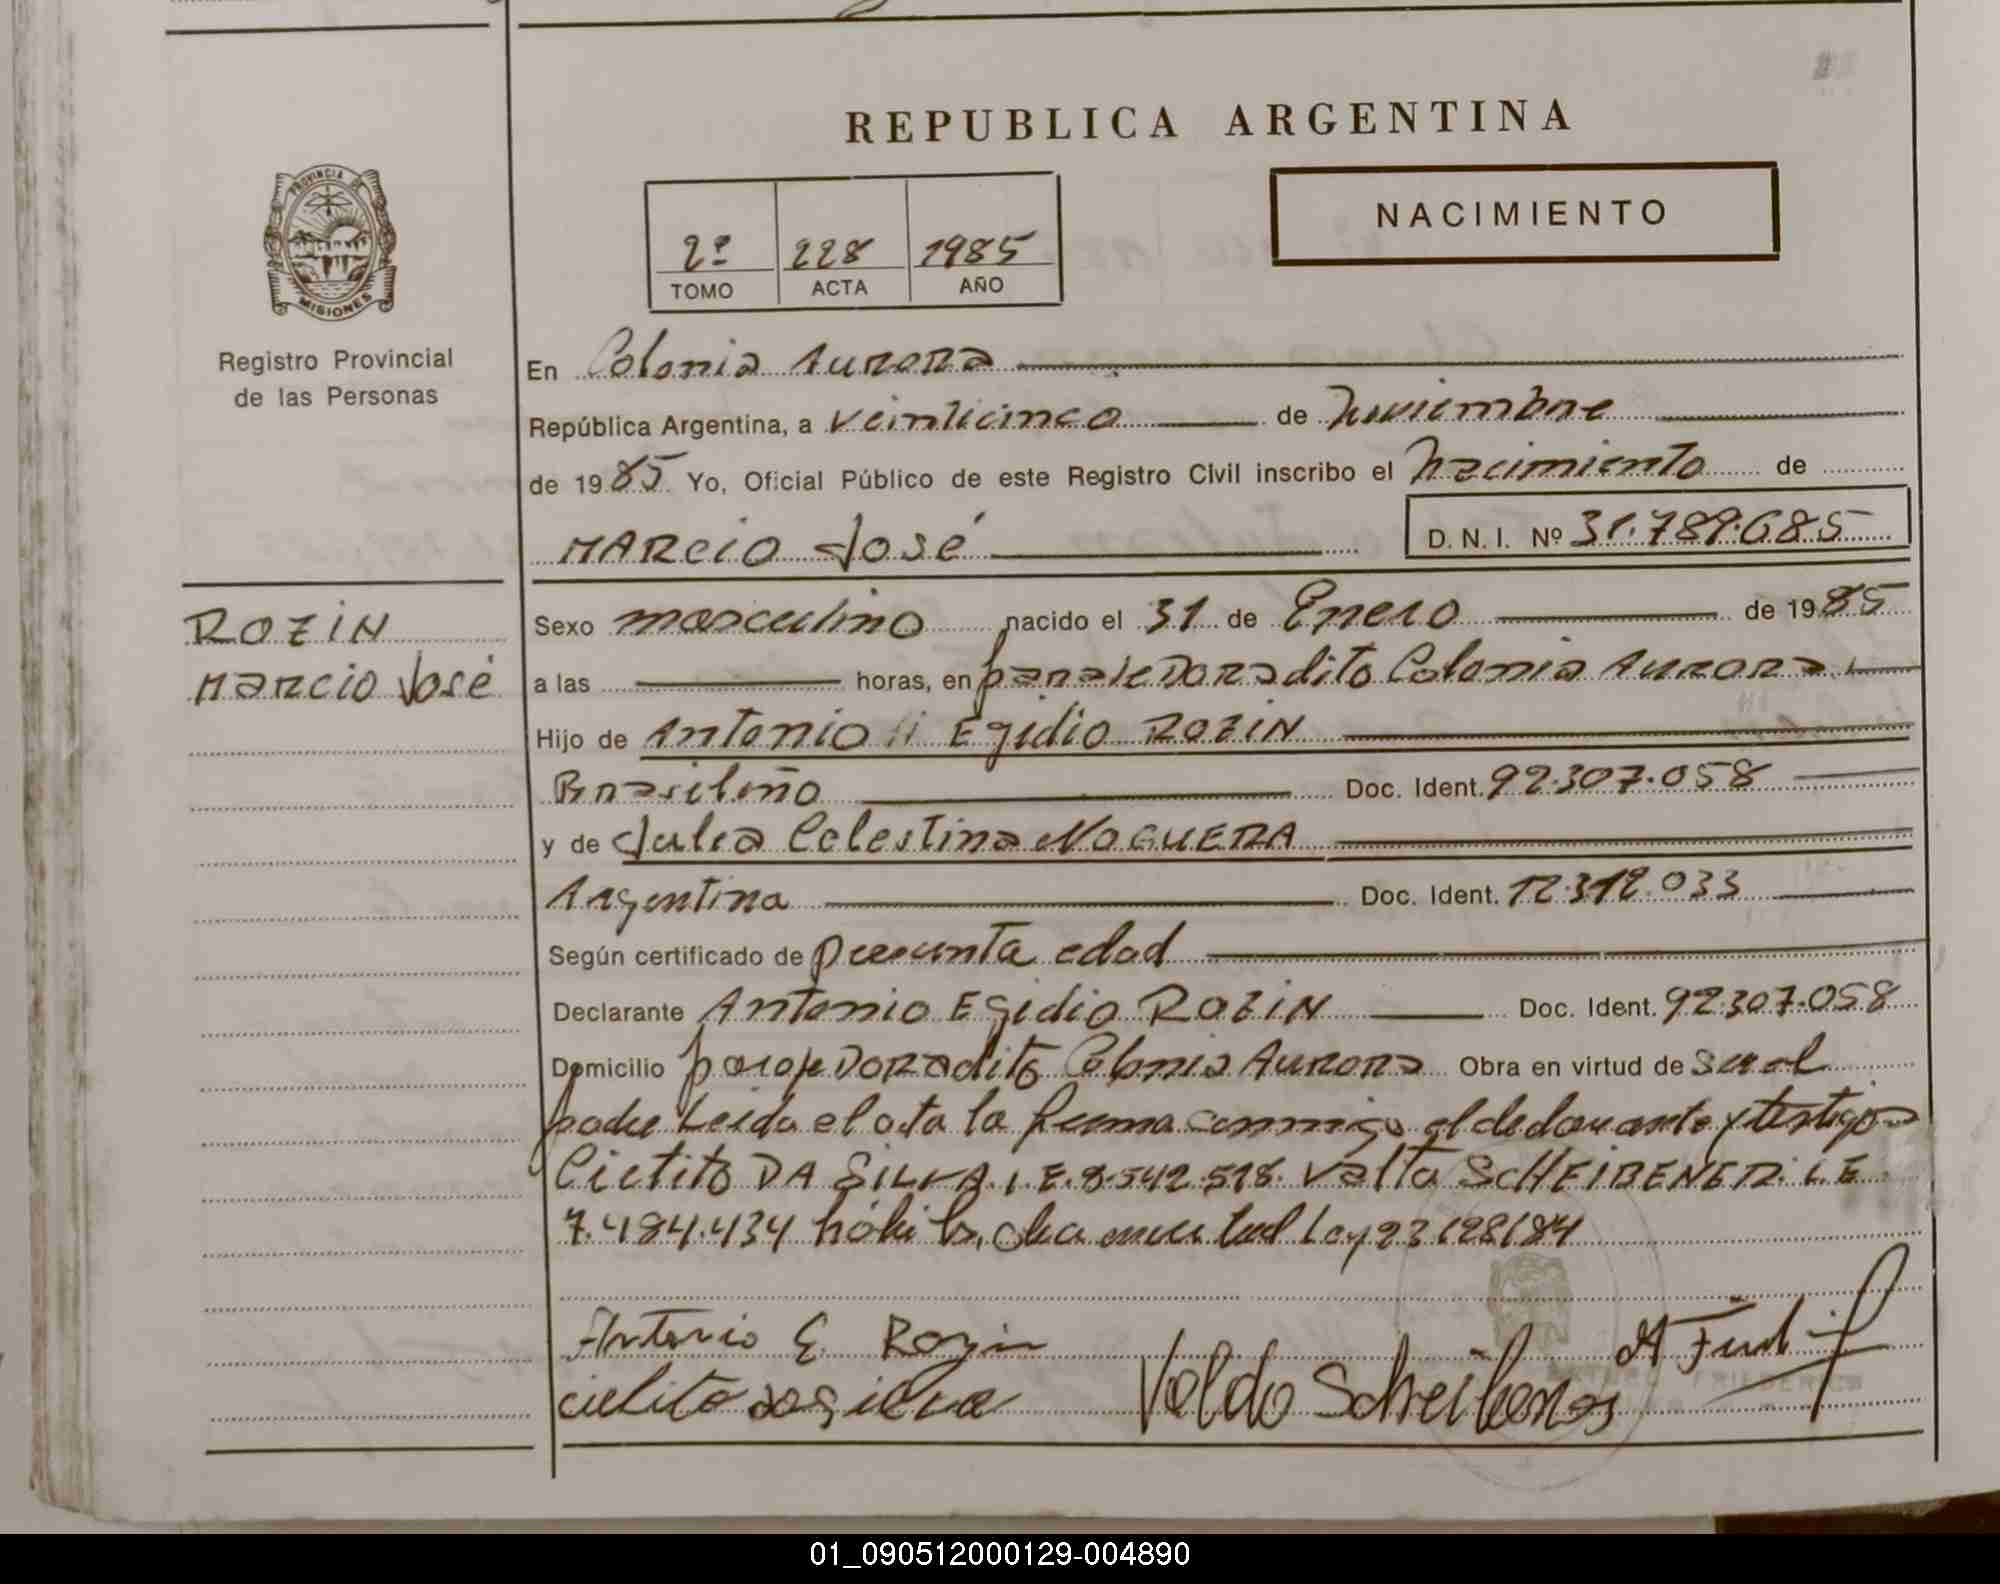 REPUBLICA ARGENTINA
NACIMIENTO
2º 228 1985
TOMO ACTA AÑO
PROVINCIA DE
MISIONES
Registro Provincial
de las Personas
En Colonia Aurora
República Argentina, a veinticinco de Noviembre
de 1985 Yo, Oficial Público de este Registro Civil inscribo el Nacimiento de
MARCIO José D. N. I. Nº 31.789.685
ROZIN
Marcio José
Sexo masculino nacido el 31 de Enero de 1985
a las horas, en paraje Doradito Colonia Aurora
Hijo de Antonio Egidio ROZIN
Brasileño Doc. Ident. 92.307.058
y de Julia Celestina NOGUERA
Argentina Doc. Ident. 12.312.033
Según certificado de presunta edad
Declarante Antonio Egidio ROZIN Doc. Ident. 92.307.058
Domicilio paraje Doradito Colonia Aurora Obra en virtud de ser el
padre Leida el acta la firma conmigo el declarante y testigos
DA SILVA. L.E. 8.542.518. SCHEIBENER. L.E
7.484.434 hábiles, obra en virtud Ley 23128/84
Antonio E. Rozin
cielito da silva
Valdo Scheibener
01_090512000129-004890